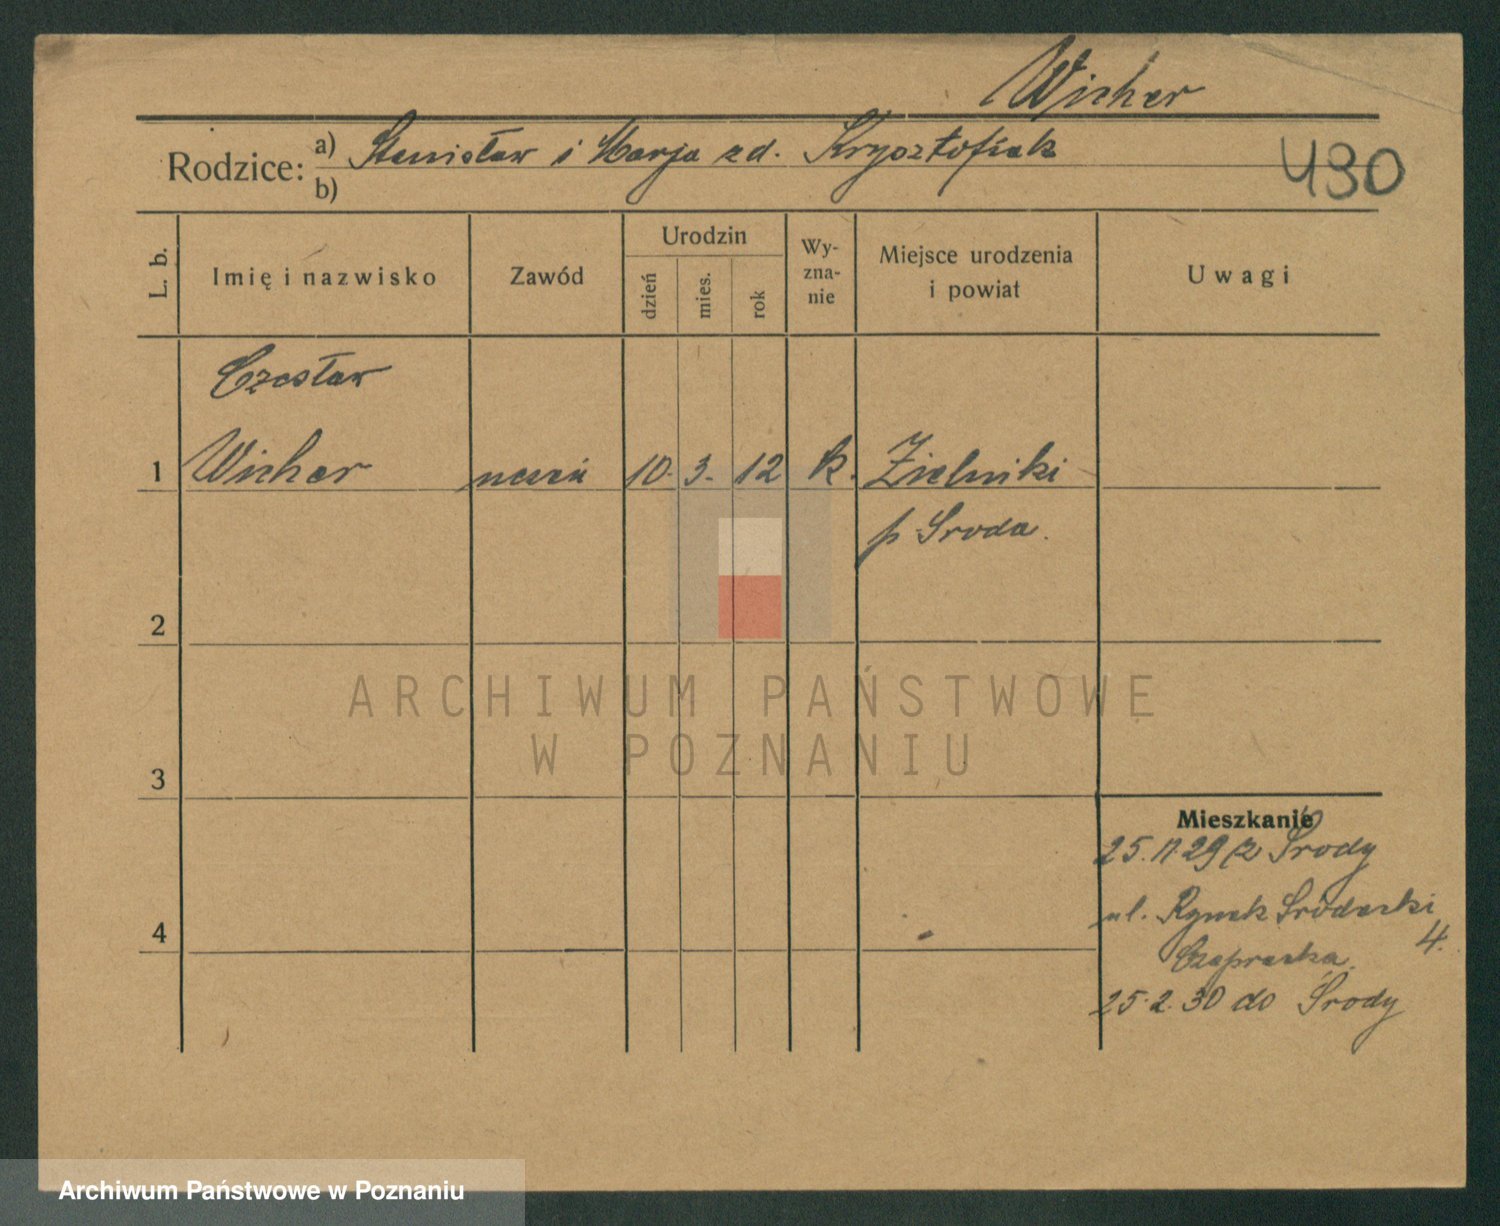 Wicher
Rodzice: a) Stanisław i Marja zd. Krysztofiak
b)
430
L. b.
Imię i nazwisko
Zawód
Urodzin
dzień
mies.
rok
Wy-
zna-
nie
Miejsce urodzenia
i powiat
Uwagi
Czesław
1 Wicher uczeń 10. 3. 12 k. Zielniki
p Środa.
2
3
4
Mieszkanie
25. 11. 29 z Środy
ul. Rynek Śródecki
4.
Czapracka
25. 2. 30 do Środy
ARCHIWUM PAŃSTWOWE
W POZNANIU
Archiwum Państwowe w Poznaniu